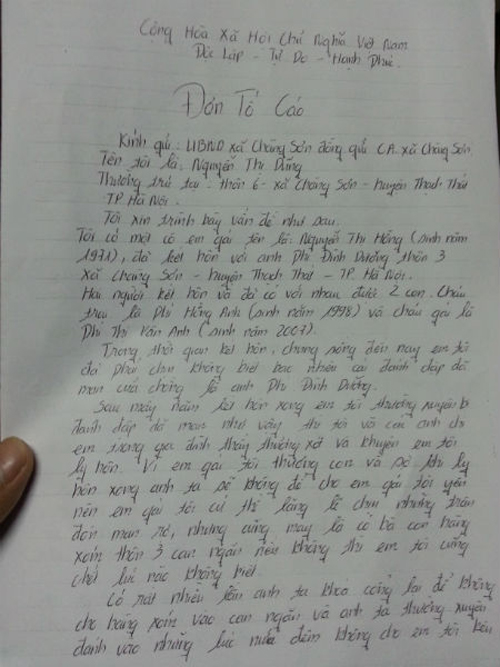 Cộng Hòa Xã Hội Chủ Nghĩa Việt Nam
Độc Lập - Tự Do - Hạnh Phúc.
Đơn Tố Cáo
Kính gửi: UBND xã Chàng Sơn đồng gửi CA. xã Chàng Sơn
Tên tôi là: Nguyễn Thị Dũng
Thường trú tại: thôn 6 - xã Chàng Sơn - huyện Thạch Thất
TP. Hà Nội.
Tôi xin trình bày vấn đề như sau.
Tôi có một cô em gái tên là: Nguyễn Thị Hồng (sinh năm
1971), đã kết hôn với anh Phí Đình Dương thôn 3
xã Chàng Sơn - huyện Thạch Thất - TP. Hà Nội.
Hai người kết hôn và đã có với nhau được 2 con. Cháu
trai là Phí Hồng Anh (sinh năm 1998) và cháu gái là
Phí Thị Vân Anh (sinh năm 2007).
Trong thời gian kết hôn, chung sống đến nay em tôi
đã phải chịu không biết bao nhiêu cái đánh đập dã
man của chồng là anh Phí Đình Dương.
Sau mấy năm kết hôn xong em tôi thường xuyên bị
đánh đập dã man như vậy thì tôi và các anh chị
em trong gia đình thấy thương xót và khuyên em tôi
ly hôn. Vì em gái tôi thương con và sợ khi ly
hôn xong anh ta sẽ không để cho em gái tôi yên
nên em gái tôi cứ thế lẳng lặng chịu những trận
đòn man rợ, nhưng cũng may là có bà con hàng
xóm thôn 3 can ngăn nếu không thì em tôi cũng
chết lúc nào không biết.
Có rất nhiều lần anh ta khóa cổng lại để không
cho hàng xóm vào can ngăn và anh ta thường xuyên
đánh vào những lúc nửa đêm không cho em tôi kêu